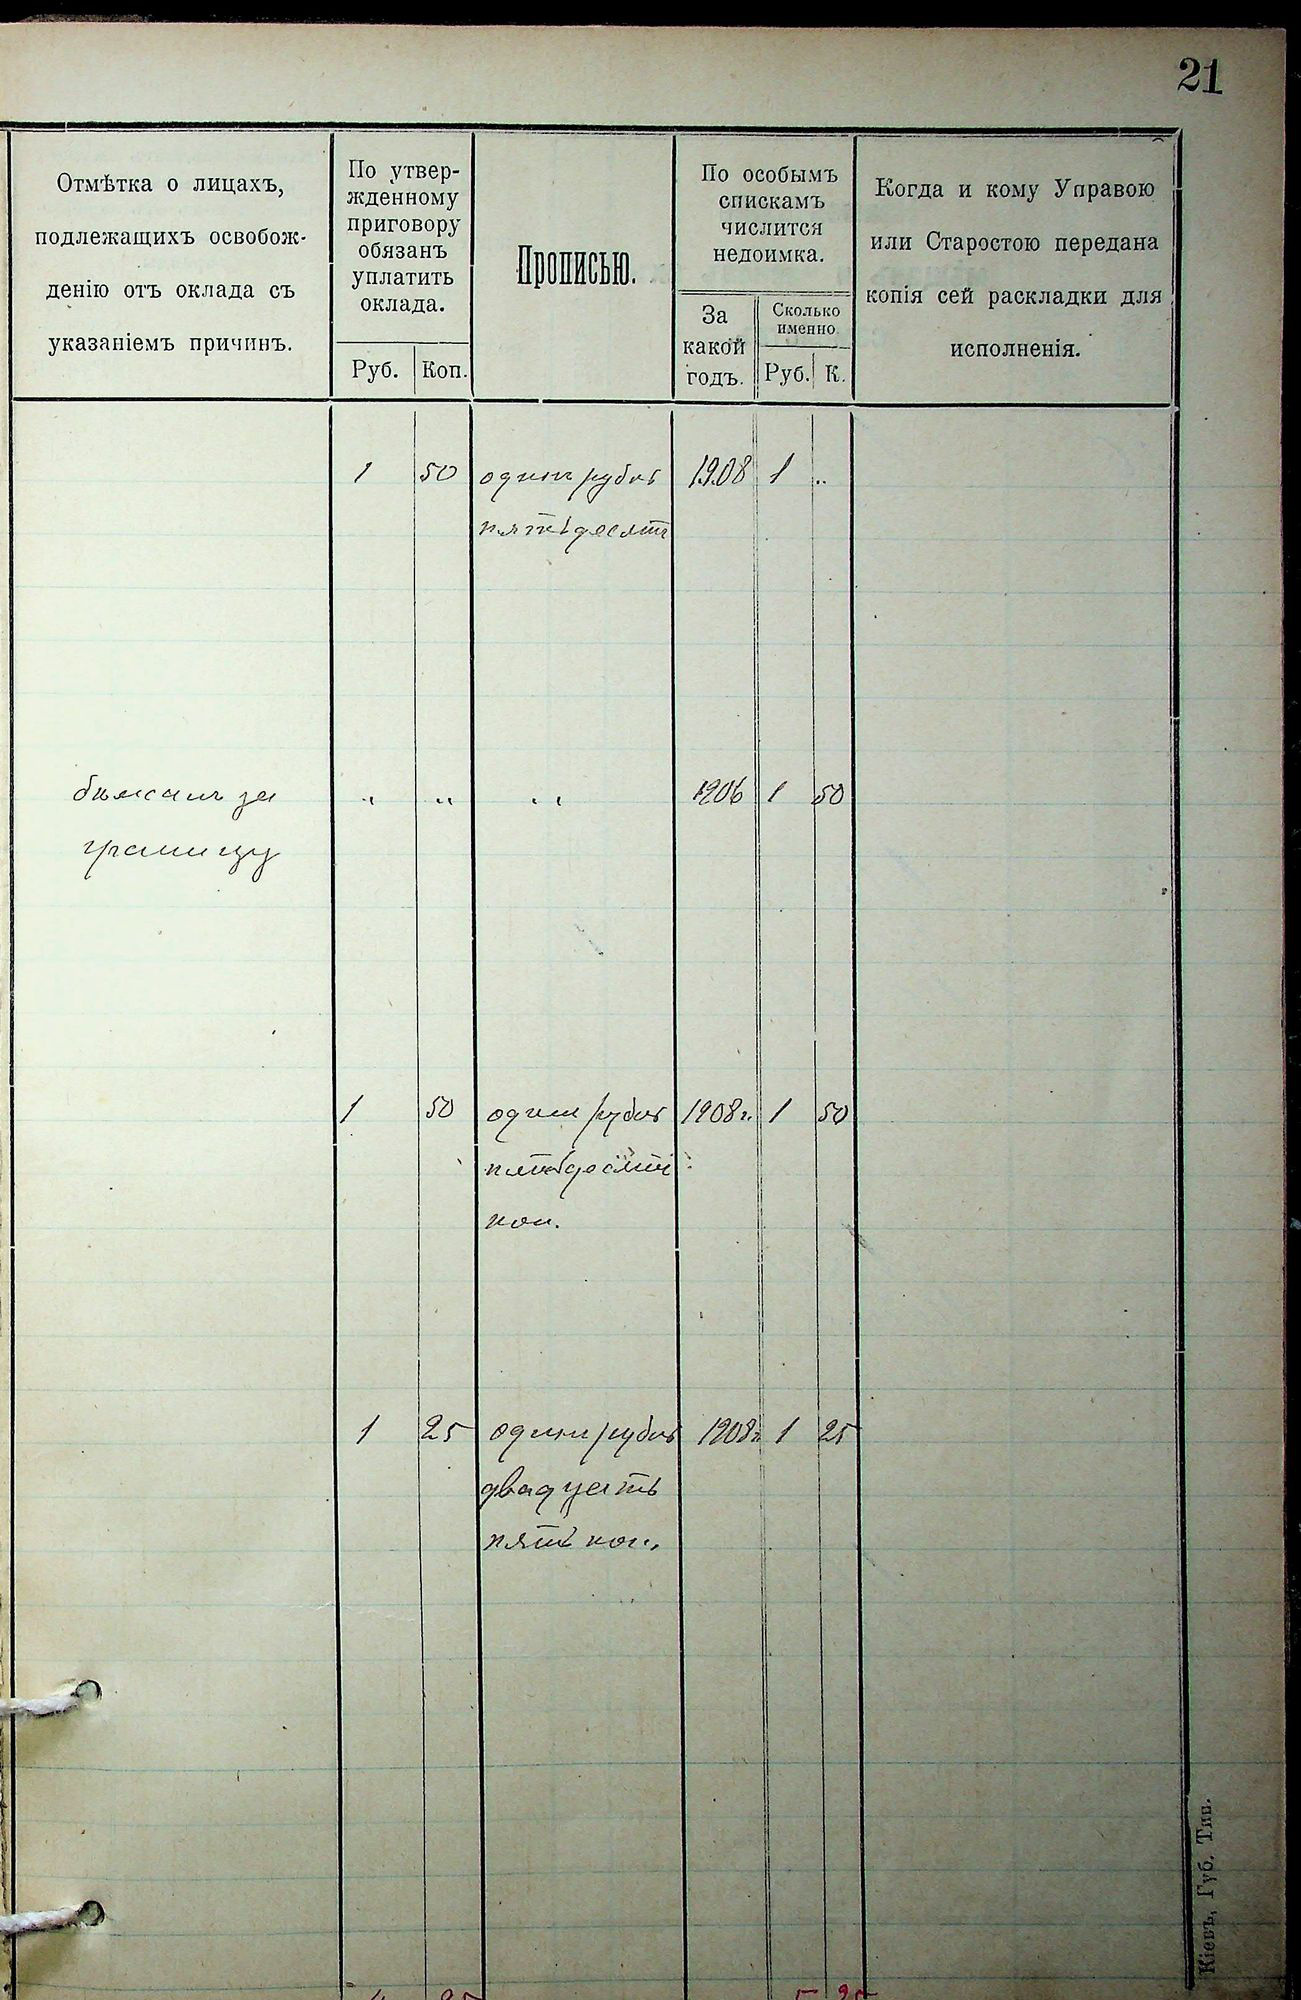 21
Отмѣтка о лицахъ,
подлежащихъ освобож-
денію отъ оклада съ
указаніемъ причинъ.
По утвер-
жденному
приговору
обязанъ
уплатить
оклада.
Руб. Коп.
Прописью.
По особымъ
спискамъ
числится
недоимка.
За
какой
годъ.
Сколько
именно
Руб. К.
Когда и кому Управою
или Старостою передана
копія сей раскладки для
исполненія.
1 50 одинъ рубль 1908 1 "
пятьдесятъ
бѣжалъ за " " " 1906 1 50
границу
1 50 одинъ рубль 1908г. 1 50
пятьдесятъ
коп.
1 25 одинъ рубль 1908г 1 25
двадцать
пять коп.
Кіевъ, Губ. Тип.